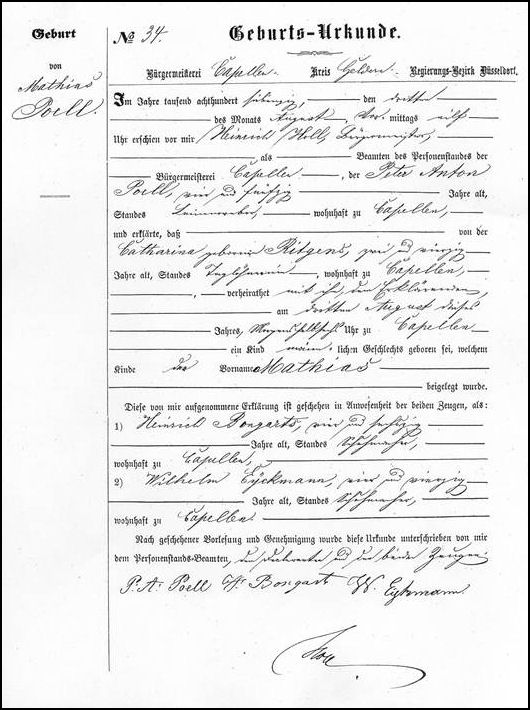 Geburt
von
Mathias
Poell.
No 34.
Geburts-Urkunde.
Bürgermeisterei Capellen. Kreis Geldern. Regierungs-Bezirk Düsseldorf.
Im Jahre tausend achthundert siebenzig, den dritten
des Monats August, Vor mittags eilf
Uhr erschien vor mir Heinrich Holl, Bürgermeister,
als Beamten des Personenstandes der
Bürgermeisterei Capellen, der Peter Anton
Poell, vier und fünfzig Jahre alt,
Standes Leineweber, wohnhaft zu Capellen,
und erklärte, daß von der
Catharina geborene Ritgens, zwei und vierzig
Jahre alt, Standes Taglöhnerin, wohnhaft zu Capellen,
verheirathet mit ihm, dem Erklärenden,
am dritten August dieses
Jahres, Morgens Uhr zu Capellen
ein Kind männ lichen Geschlechts geboren sei, welchem
Kinde der Vorname Mathias
beigelegt wurde.
Diese von mir aufgenommene Erklärung ist geschehen in Anwesenheit der beiden Zeugen, als:
1) Heinrich Bongarts, vier und sechzig
Jahre alt, Standes Schuhmacher,
wohnhaft zu Capellen,
2) Wilhelm Eyckmann, vier und vierzig
Jahre alt, Standes Schuhmacher,
wohnhaft zu Capellen.
Nach geschehener Vorlesung und Genehmigung wurde diese Urkunde unterschrieben von mir
dem Personenstands-Beamten, dem Declaranten und den beiden Zeugen.
P. A. Poell H. Bongart W. Eykmann
Holl